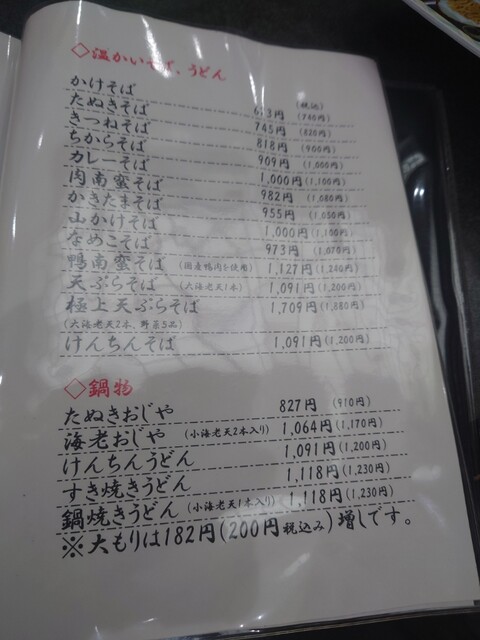 ◇温かいそば、うどん
(税込)
かけそば 673円 (740円)
たぬきそば 745円 (820円)
きつねそば 818円 (900円)
ちからそば 909円 (1,000円)
カレーそば 1,000円 (1,100円)
肉南蛮そば 982円 (1,080円)
かきたまそば 955円 (1,050円)
山かけそば 1,000円 (1,100円)
なめこそば 973円 (1,070円)
鴨南蛮そば (国産鴨肉を使用) 1,127円 (1,240円)
天ぷらそば (大海老天1本) 1,091円 (1,200円)
極上天ぷらそば 1,709円 (1,880円)
(大海老天2本、野菜5品)
けんちんそば 1,091円 (1,200円)
◇鍋物
たぬきおじや 827円 (910円)
海老おじや (小海老天2本入り) 1,064円 (1,170円)
けんちんうどん 1,091円 (1,200円)
すき焼きうどん 1,118円 (1,230円)
鍋焼きうどん (小海老天1本入り) 1,118円 (1,230円)
※大もりは182円(200円税込み)増しです。